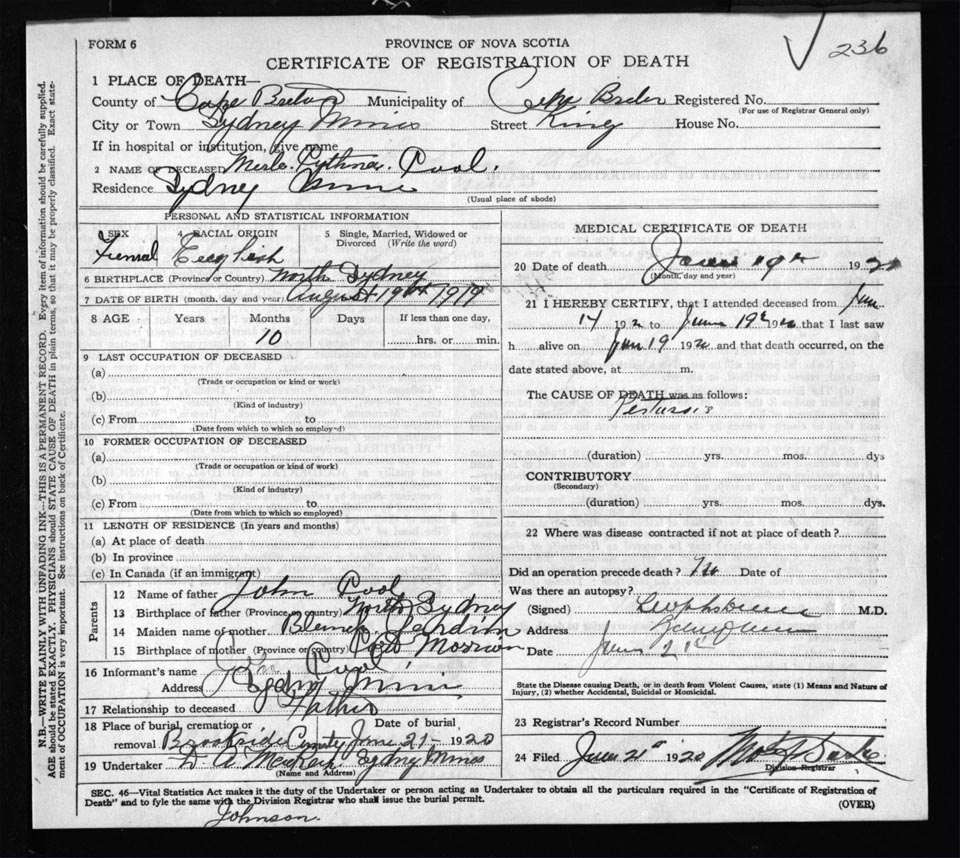 FORM 6
PROVINCE OF NOVA SCOTIA
236
CERTIFICATE OF REGISTRATION OF DEATH
1 PLACE OF DEATH—
County of Cape Breton Municipality of Cape Breton Registered No.
(For use of Registrar General only)
City or Town Sydney Mines Street King House No.
If in hospital or institution, give name
2 NAME OF DECEASED Merle Pool.
Residence Sydney Mines
(Usual place of abode)
PERSONAL AND STATISTICAL INFORMATION
3 SEX 4 RACIAL ORIGIN 5 Single, Married, Widowed or
Divorced (Write the word)
Femal English
6 BIRTHPLACE (Province or Country) North Sydney
7 DATE OF BIRTH (month, day and year) August 19th 1919
8 AGE Years Months Days If less than one day,
10 hrs. or min.
9 LAST OCCUPATION OF DECEASED
(a)
(Trade or occupation or kind or work)
(b)
(Kind of industry)
(c) From to
(Date from which to which so employed)
10 FORMER OCCUPATION OF DECEASED
(a)
(Trade or occupation or kind of work)
(b)
(Kind of industry)
(c) From to
(Date from which to which so employed)
11 LENGTH OF RESIDENCE (In years and months)
(a) At place of death
(b) In province
(c) In Canada (if an immigrant)
Parents
12 Name of father John Pool
13 Birthplace of father (Province or country) North Sydney
14 Maiden name of mother
15 Birthplace of mother (Province or country) Port Morrion
16 Informant's name John Pool
Address Sydny Mines
17 Relationship to deceased Father
18 Place of burial, cremation or Date of burial
removal Brookside June 21- 1920
19 Undertaker Sydny Mines
(Name and Address)
MEDICAL CERTIFICATE OF DEATH
20 Date of death June 19th 1920
(Month, day and year)
21 I HEREBY CERTIFY, that I attended deceased from June
14 192 to June 19th 192 that I last saw
h alive on Jun 19 192 and that death occurred, on the
date stated above, at m.
The CAUSE OF DEATH was as follows:
Pertussis
(duration) yrs. mos. dys
CONTRIBUTORY
(Secondary)
(duration) yrs. mos. dys.
22 Where was disease contracted if not at place of death?
Did an operation precede death? No Date of
Was there an autopsy?
(Signed) M.D.
Address
Date June 21st
State the Disease causing Death, or in death from Violent Causes, state (1) Means and Nature of
Injury, (2) whether Accidental, Suicidal or Homicidal.
23 Registrar's Record Number
24 Filed June 21st 1920
Division Registrar
SEC. 46—Vital Statistics Act makes it the duty of the Undertaker or person acting as Undertaker to obtain all the particulars required in the "Certificate of Registration of
Death" and to fyle the same with the Division Registrar who shall issue the burial permit.
(OVER)
Johnson.
N.B.—WRITE PLAINLY WITH UNFADING INK—THIS IS A PERMANENT RECORD. Every item of information should be carefully supplied.
AGE should be stated EXACTLY. PHYSICIANS should STATE CAUSE OF DEATH in plain terms, so that it may be properly classified. Exact state-
ment of OCCUPATION is very important. See instructions on back of Certificate.